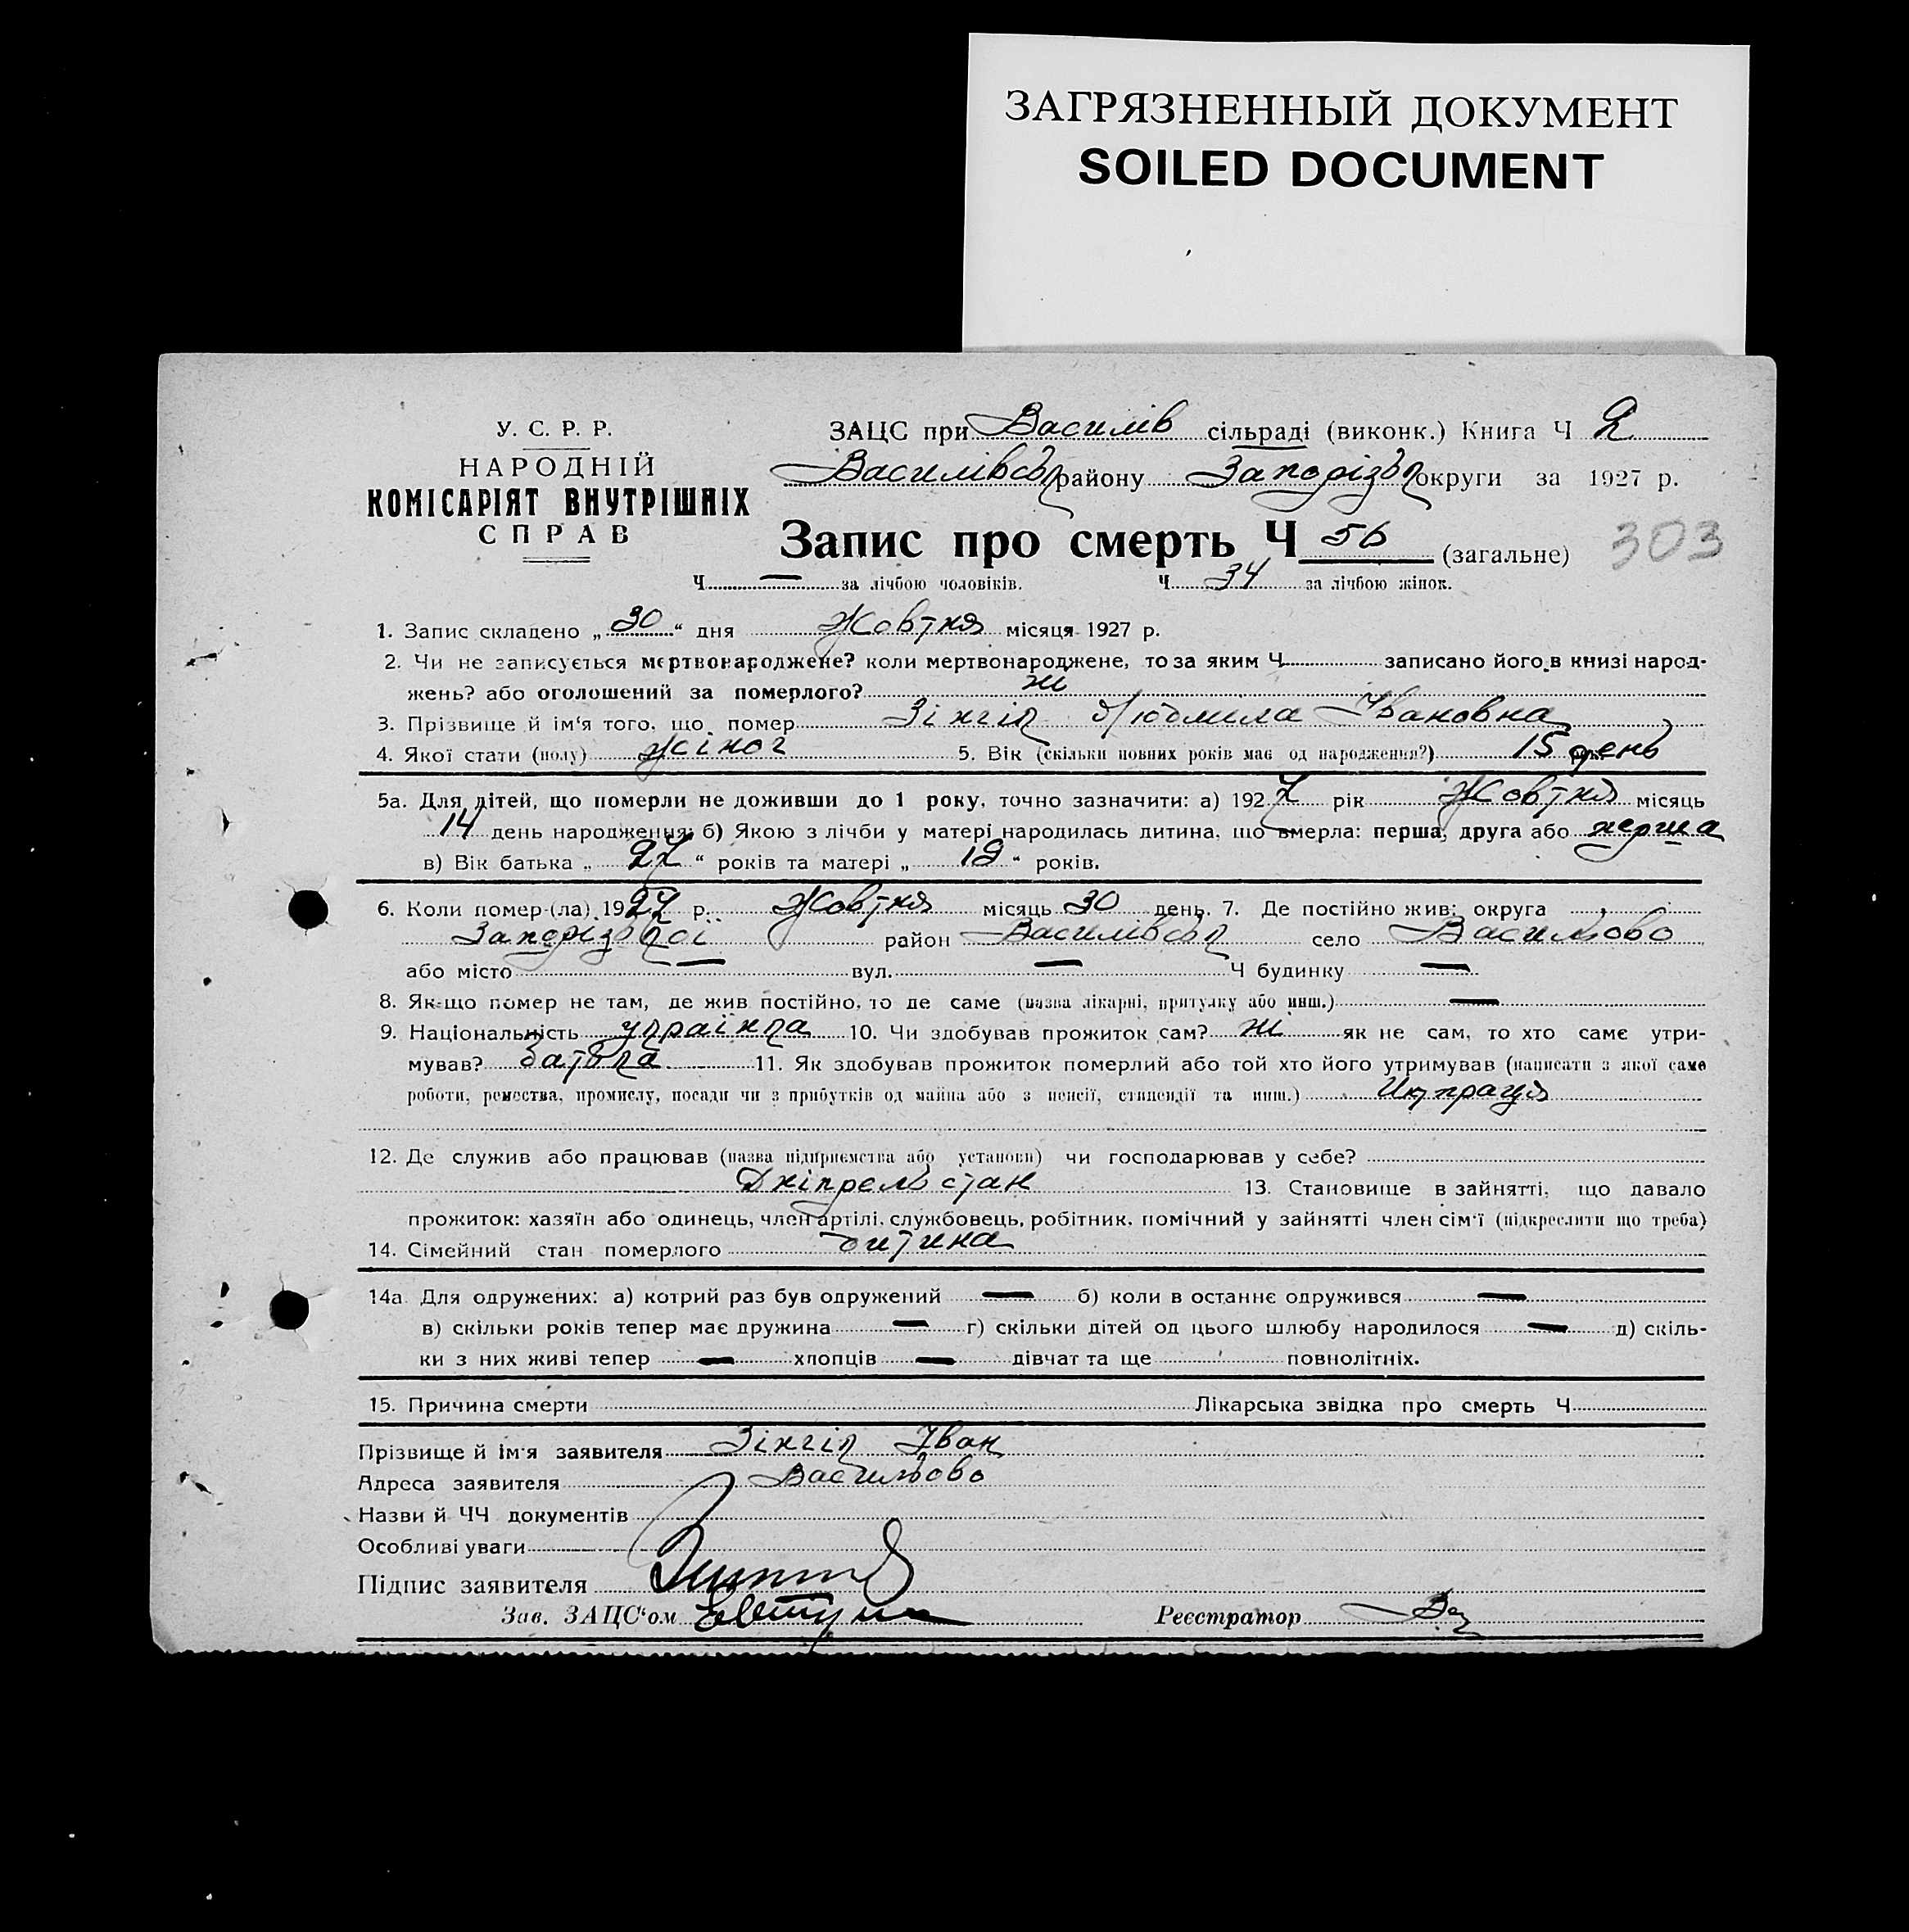 ЗАГРЯЗНЕННЫЙ ДОКУМЕНТ
SOILED DOCUMENT
У. С. Р. Р.
НАРОДНІЙ
КОМІСАРІЯТ ВНУТРІШНІХ
СПРАВ
ЗАЦС при Василів сільраді (виконк.) Книга Ч 2
Василівськ району Запорізьк округи за 1927 р.
Запис про смерть Ч 56 (загальне) 303
Ч — за лічбою чоловіків. Ч 34 за лічбою жінок.
1. Запис складено „ 30 “ дня Жовтня місяця 1927 р.
2. Чи не записується мертвонароджене? коли мертвонароджене, то за яким Ч записано його в книзі народ-
жень? або оголошений за померлого? ні
3. Прізвище й ім'я того, що помер Людмила Івановна
4. Якої стати (полу) жіноч 5. Вік (скільки повних років має од народження?) 15 день
5а. Для дітей, що померли не доживши до 1 року, точно зазначити: а) 1927 рік Жовтня місяць
14 день народження; б) Якою з лічби у матері народилась дитина, що вмерла: перша, друга або перша
в) Вік батька „ 27 “ років та матері „ 19 “ років.
6. Коли помер (ла) 1927 р. Жовтня місяць 30 день. 7. Де постійно жив: округа
Запорізької район Василівськ село Васильово
або місто — вул. — Ч будинку —
8. Якщо помер не там, де жив постійно, то де саме (назва лікарні, притулку або инш.) —
9. Національність українка 10. Чи здобував прожиток сам? ні як не сам, то хто саме утри-
мував? батька 11. Як здобував прожиток померлий або той хто його утримував (написати з якої саме
роботи, ремества, промислу, посади чи з прибутків од майна або з пенсії, стипендії та инш.)
12. Де служив або працював (назва підприємства або установи) чи господарював у себе?
13. Становище в зайнятті, що давало
прожиток: хазяїн або одинець, член артілі, службовець, робітник, помічний у зайнятті член сім'ї (підкреслити що треба)
14. Сімейний стан померлого дитина
14а. Для одружених: а) котрий раз був одружений — б) коли в останнє одружився —
в) скільки років тепер має дружина — г) скільки дітей од цього шлюбу народилося — д) скіль-
ки з них живі тепер — хлопців — дівчат та ще повнолітніх.
15. Причина смерти Лікарська звідка про смерть Ч
Прізвище й ім'я заявителя Іван
Адреса заявителя Васильово
Назви й ЧЧ документів
Особливі уваги
Підпис заявителя
Зав. ЗАЦС'ом Реєстратор